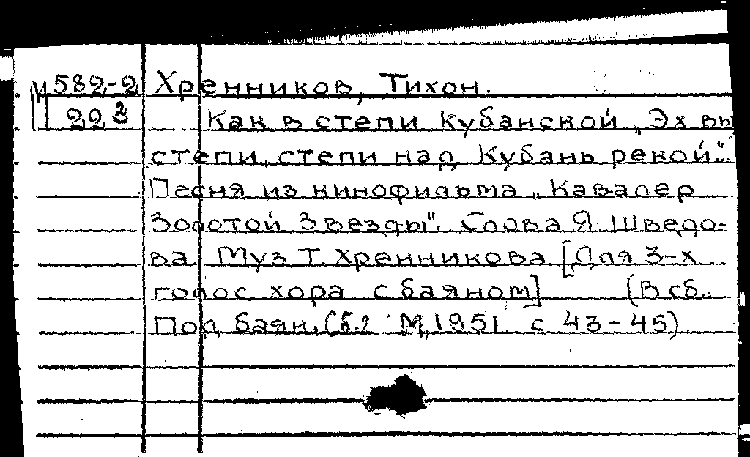 М582-2 Хренников, Тихон.
223 Как в степи Кубанской „Эх вы
степи, степи над Кубань рекой".
Песня из кинофильма „Кавалер
Золотой Звезды". Слова Я. Шведо-
ва Муз Т. Хренникова [Для 3-х
голос хора с баяном] (В сб.
Под баян. Сб.2 М, 1951 с 43-45)